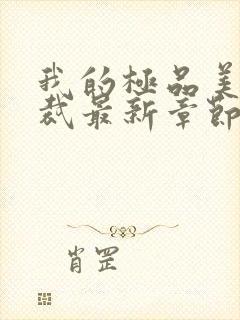 我的極品美
裁最新章節
肖罡